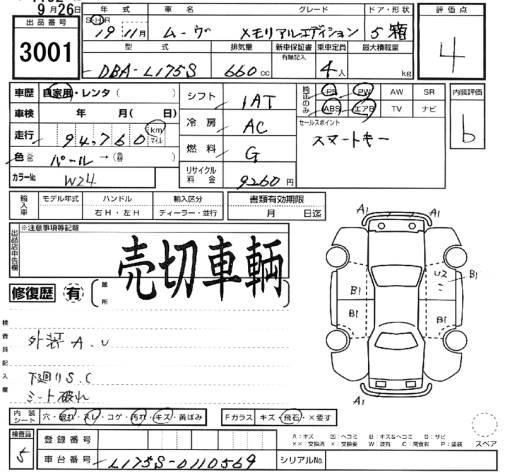 9月26日
出品番号
3001
年式 車名 グレード ドア・形状 評価点
S・H・R
19年11月 ムーヴ メモリアルエディション 5 箱
4
型式 排気量 新車保証書 乗車定員 最大積載量
有無記入
DBA-L175S 660cc 4人 kg
車歴 自家用・レンタ( )
車検 年 月( 日)
走行 94,760 km マイル
色 パール→( )
カラーNo. W24
シフト 1AT
冷房 AC
燃料 G
リサイクル料金 9260円
純正のみ PS PW AW SR
ABS エアB TV ナビ
セールスポイント
スマートキー
内装評価
b
輸入車 モデル年式 ハンドル 輸入区分
右H・左H ディーラー・並行
書類有効期限
月 日迄
出品店申告欄
※注意事項等記載
売切車輌
修復歴 有 箇所
検査員記入欄
外装A.U
下廻りS.C
シート破れ
A1 A1
U2 B1
B1
B1 B1
A1 A1
内装シート 穴・破れ・スレ・コゲ・汚れ・キズ・黄ばみ
Fガラス キズ・飛石・×要す
検査員
5
登録番号
車台番号 L175S-0110569 シリアルNo.
A：キズ U：ヘコミ B：キズ&ヘコミ S：サビ
スペア